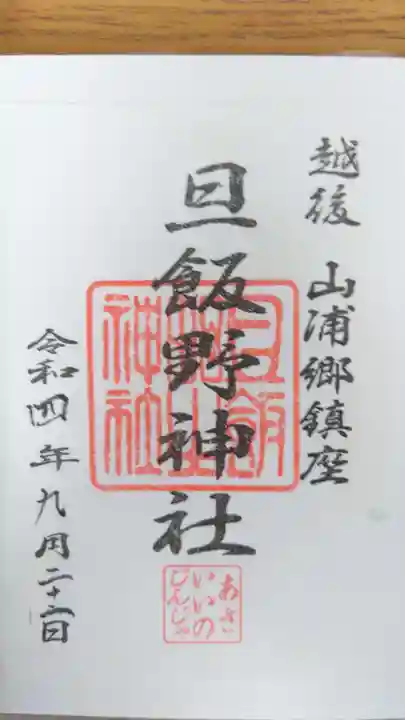 越後 山浦郷鎮座
旦飯野神社
旦飯野神社
あさ
いいの
じんじゃ
令和四年九月二十二日